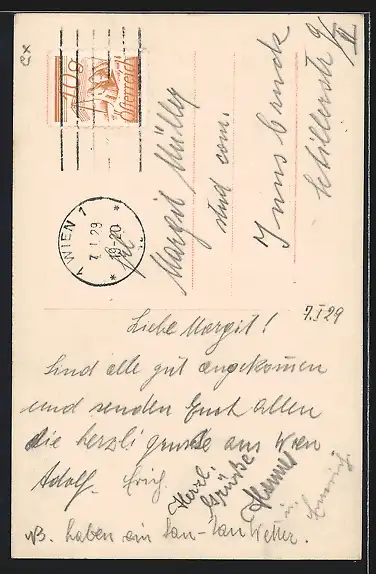 ex
10g
Österreich
1 WIEN 1
7. I. 29
18-20
Margit Müller
stud com.
Innsbruck
Schillerstr 9/II
7.I 29
Liebe Margit!
Sind alle gut angekomen
und senden Euch allen
die herzli grüße aus Wien
Adolf. Erich.
Herzl.
Grüße
Hannes
NB. haben ein Sau-Sau Wetter.